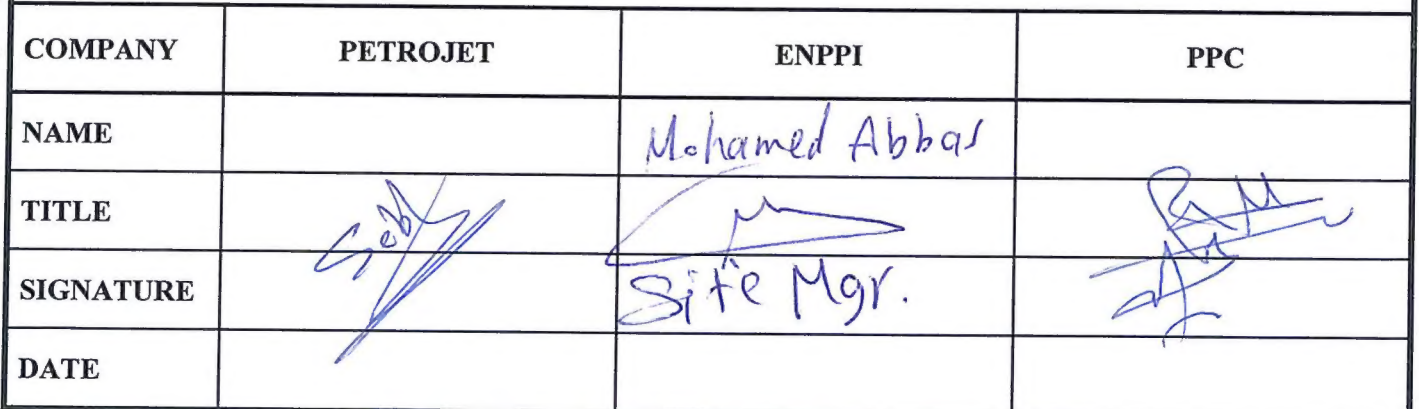 COMPANY PETROJET ENPPI PPC
NAME Mohamed Abbas
TITLE
SIGNATURE Site Mgr.
DATE